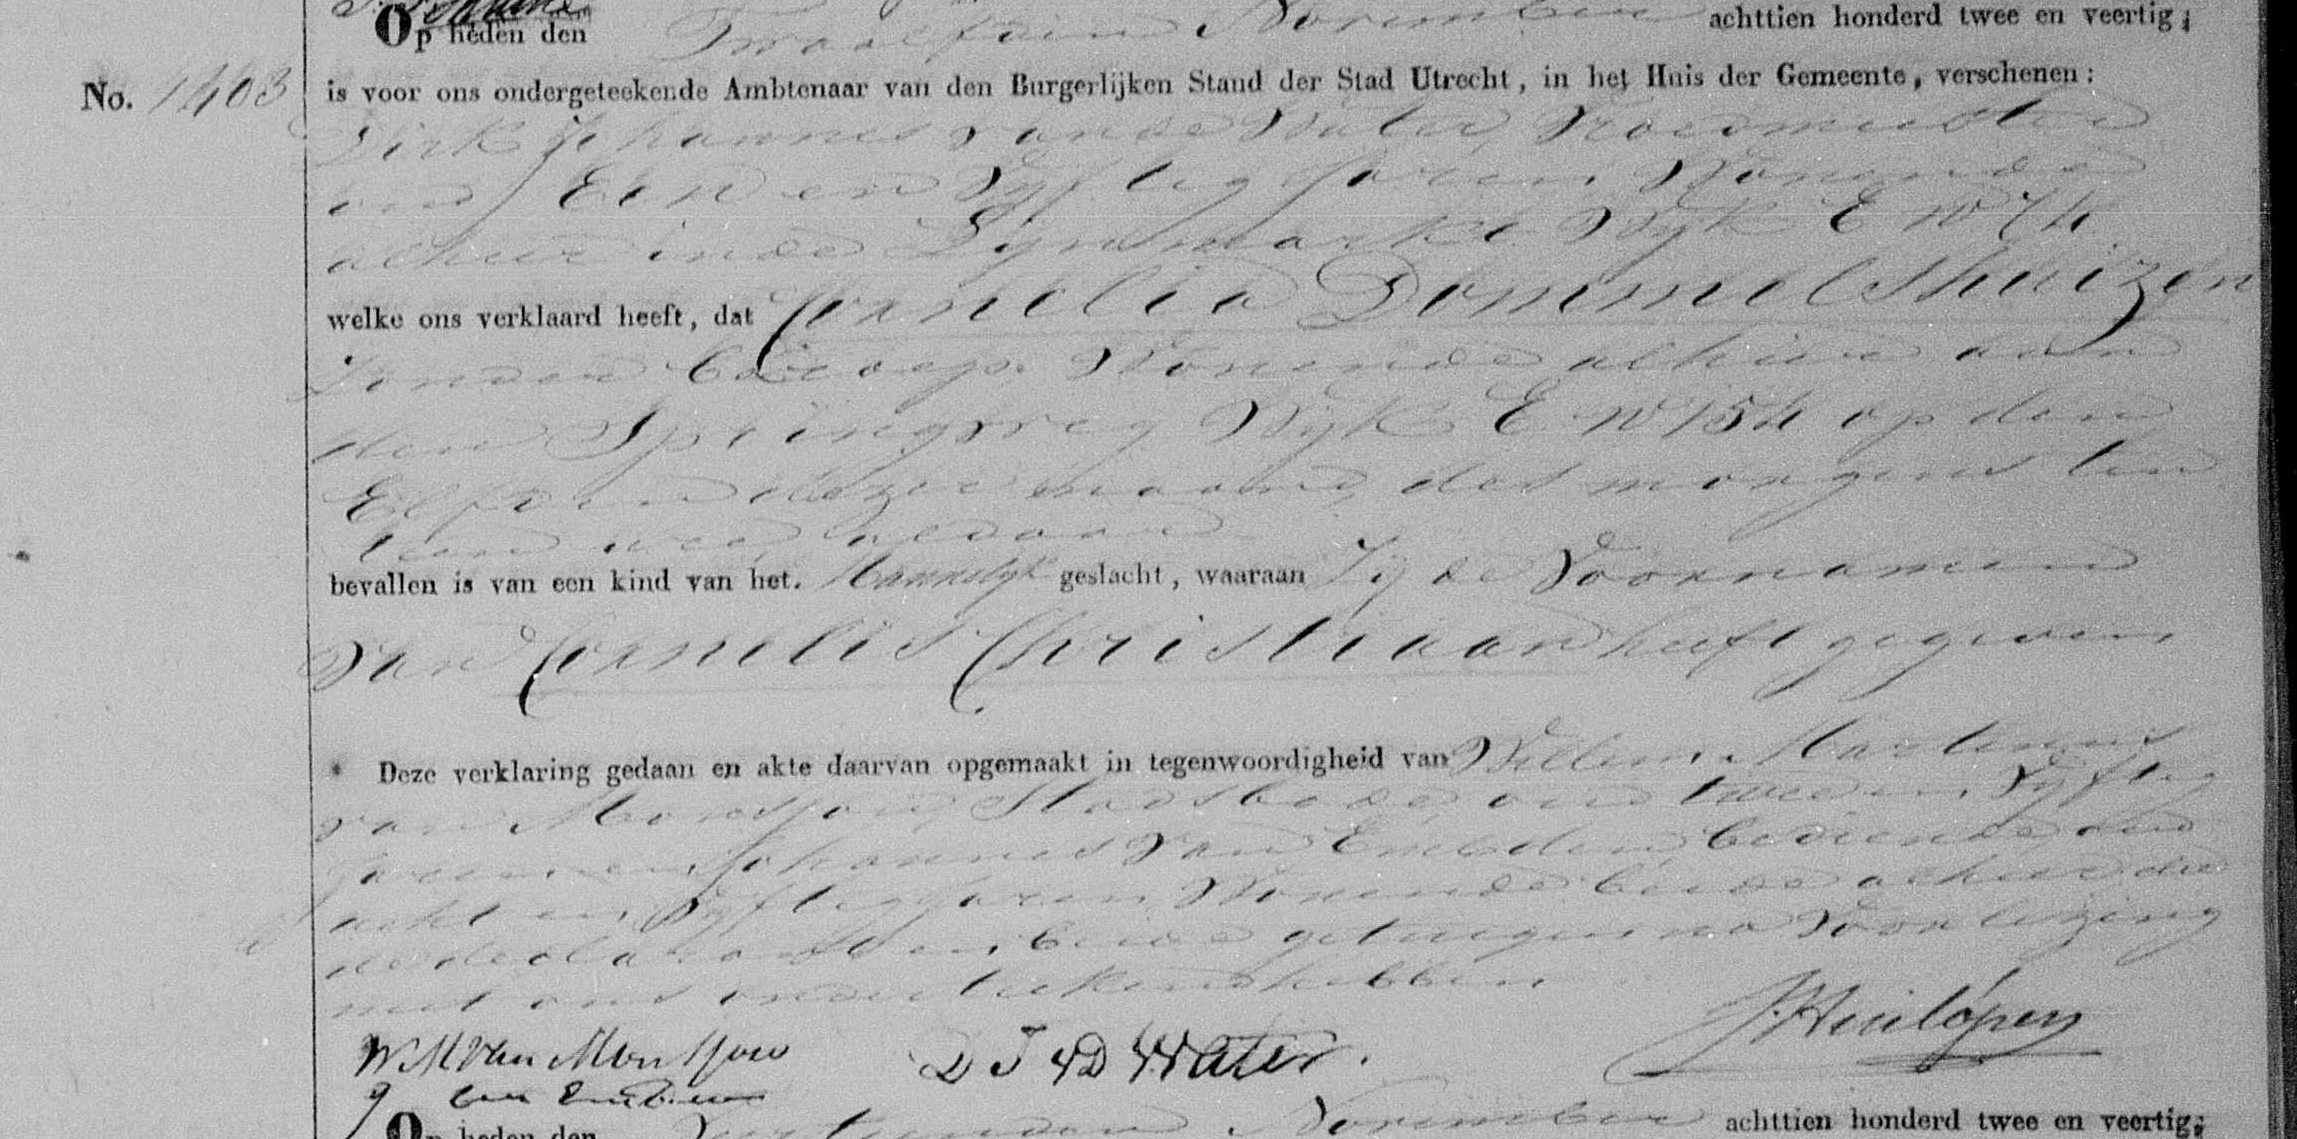 Op heden den Twaalfden November achttien honderd twee en veertig;
No. 1403
is voor ons ondergeteekende Ambtenaar van den Burgerlijken Stand der Stad Utrecht, in het Huis der Gemeente, verschenen:
Dirk Johannes van de Water, Vroedmeester
oud Een en Vyftig Jaren, Wonende
alhier in de Lynmarkt Wyk E No 74
welke ons verklaard heeft, dat Cornelia Dommelshuizen
Zonder Beroep. Wonende alhier aan
den Springweg Wyk E No 154 op den
Elfden dezer maand des morgens ten
een ure, aldaar
bevallen is van een kind van het. Mannelyk geslacht, waaraan Zy de Voornamen
van Cornelis Christiaan heeft gegeven
Deze verklaring gedaan en akte daarvan opgemaakt in tegenwoordigheid van Willem Martinus
van Montfoort Stadsbode, oud twee en Vyftig
Jaren, en Johannes van Embden, bediende oud
acht en Vyftig Jaren Wonende beide alhier die
de declarant en, beide getuigen na Voorlezing
met ons onderteekend hebben
W. M. Van Montfoort D J V D Water. J. Hinlópen
J van Embden
Op heden den November achttien honderd twee en veertig;